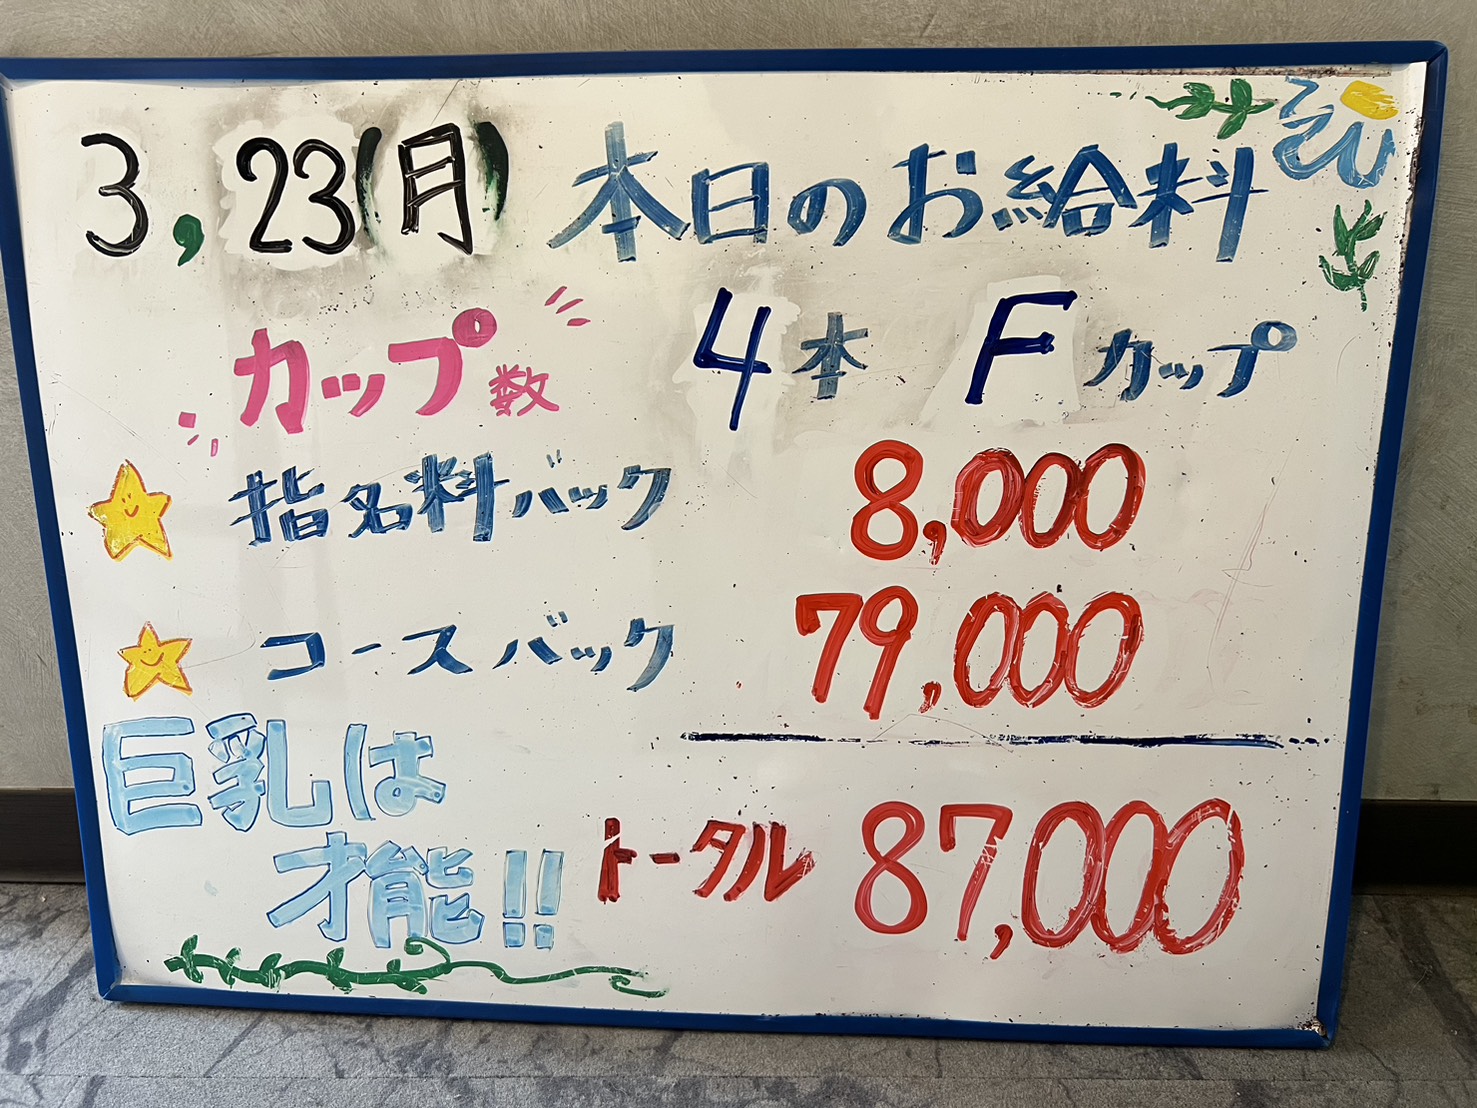 3,23(月) 本日のお給料
カップ数 4本 Fカップ
指名料バック 8,000
コースバック 79,000
巨乳は
才能!!
トータル 87,000